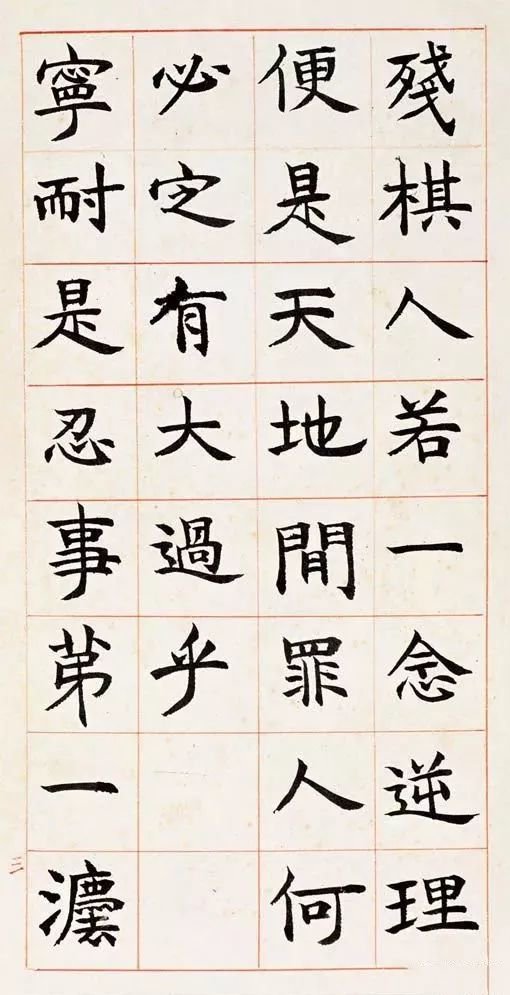 殘棋人若一念逆理
便是天地閒罪人何
必定有大過乎
寧耐是忍事苐一灋